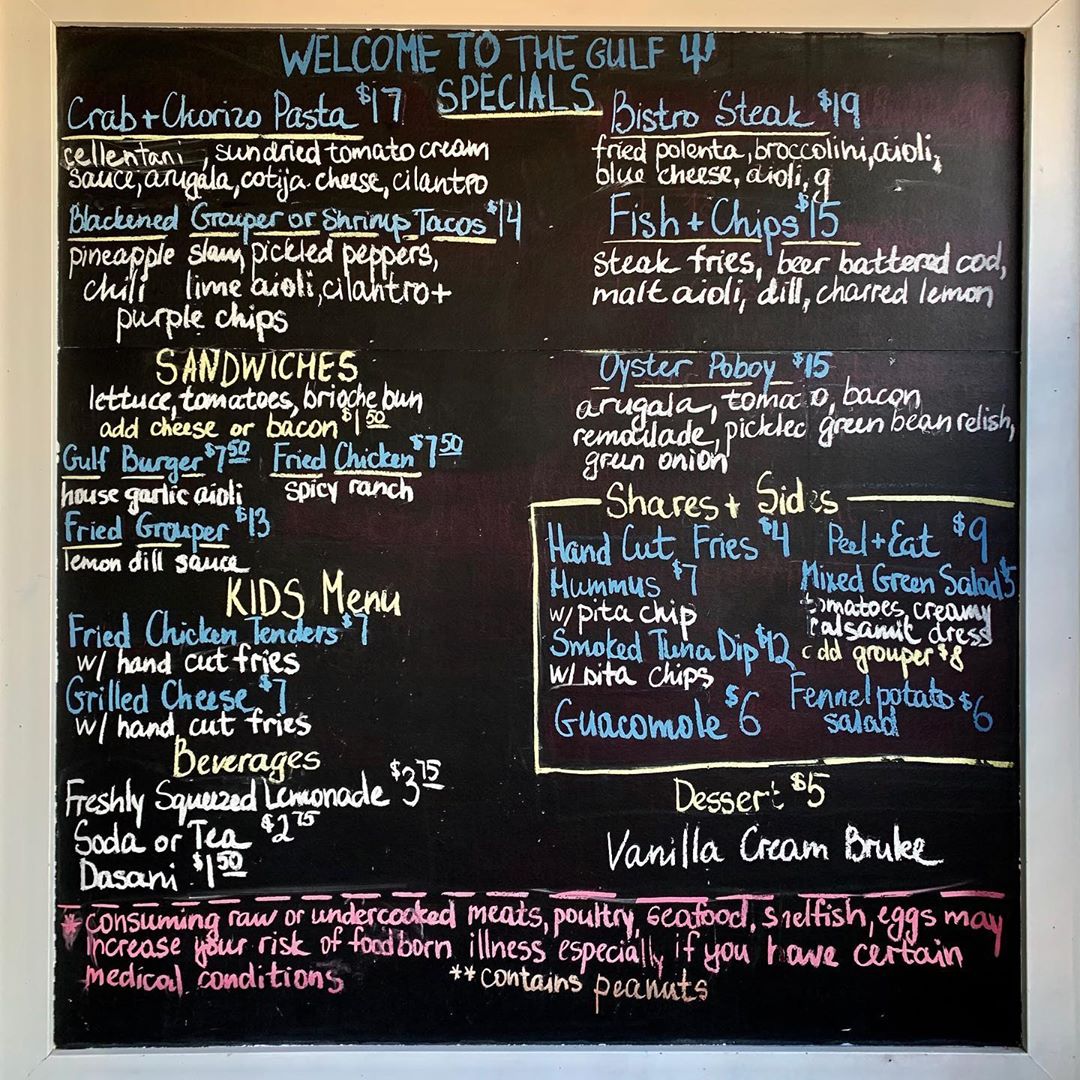 WELCOME TO THE GULF
SPECIALS
Crab + Chorizo Pasta $17
cellentani, sundried tomato cream
sauce, arugala, cotija cheese, cilantro
Blackened Grouper or Shrimp Tacos $14
pineapple slaw, pickled peppers,
chili lime aioli, cilantro +
purple chips
Bistro Steak $19
fried polenta, broccolini, aioli,
blue cheese, aioli, g
Fish + Chips $15
steak fries, beer battered cod,
malt aioli, dill, charred lemon
SANDWICHES
lettuce, tomatoes, brioche bun
add cheese or bacon $1 50
Gulf Burger $7 50 Fried Chicken $7 50
house garlic aioli spicy ranch
Fried Grouper $13
lemon dill sauce
KIDS Menu
Fried Chicken Tenders $7
w/ hand cut fries
Grilled Cheese $7
w/ hand cut fries
Beverages
Freshly Squeezed Lemonade $3 75
Soda or Tea $2 75
Dasani $1 50
Oyster Poboy $15
arugala, toma o, bacon
remoulade, pickled green bean relish,
green onion
Shares + Sides
Hand Cut Fries $4 Peel + Eat $9
Hummus $7
w/ pita chip
Smoked Tuna Dip $12
w/ pita chips
Guacomole $6
Mixed Green Salad $5
tomatoes, creamy
balsamic dress
add grouper $8
Fennel potato $6
salad
Dessert $5
Vanilla Cream Brulee
* consuming raw or undercooked meats, poultry, seafood, shelfish, eggs may
increase your risk of foodborn illness especially if you have certain
medical conditions **contains peanuts